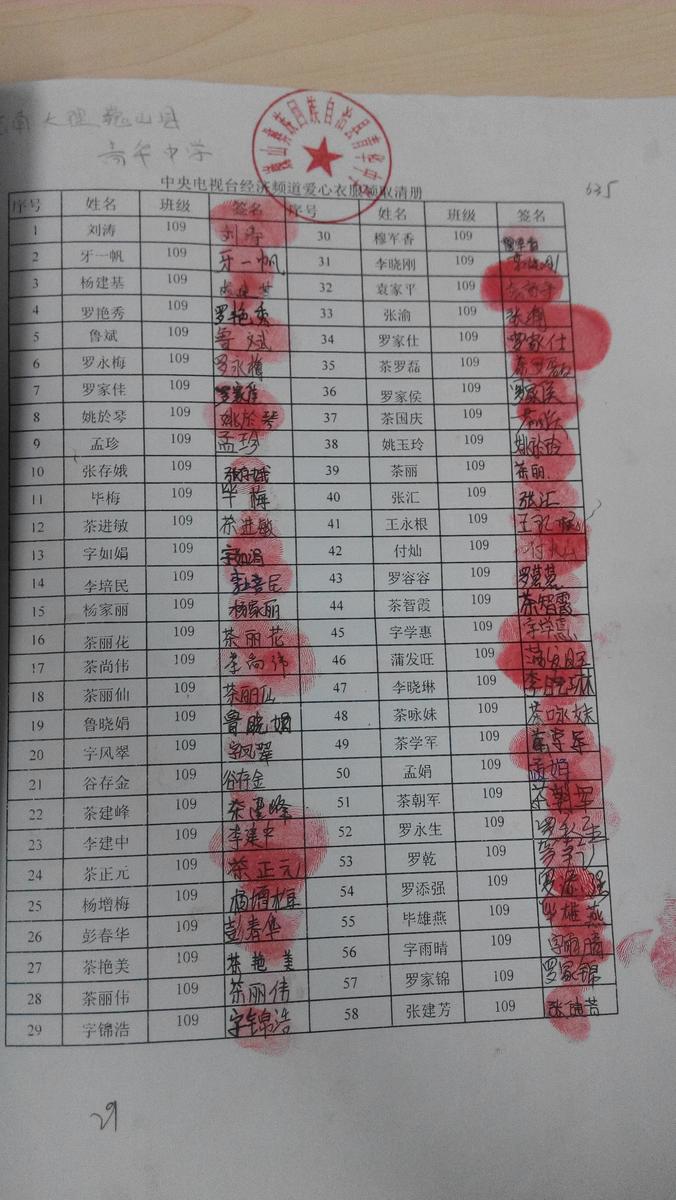 大理巍山县
青华中学
巍山彝族回族自治县青华中学
中央电视台经济频道爱心衣服领取清册
635
序号 姓名 班级 签名 序号 姓名 班级 签名
1 刘涛 109 刘涛 30 穆军香 109 穆军香
2 牙一帆 109 牙一帆 31 李晓刚 109 李晓刚
3 杨建基 109 杨建基 32 袁家平 109 袁家平
4 罗艳秀 109 罗艳秀 33 张渝 109 张渝
5 鲁斌 109 鲁斌 34 罗家仕 109 罗家仕
6 罗永梅 109 罗永梅 35 茶罗磊 109 茶罗磊
7 罗家佳 109 罗家佳 36 罗家侯 109 罗家侯
8 姚於琴 109 姚於琴 37 茶国庆 109
9 孟珍 109 孟珍 38 姚玉玲 109 姚玉玲
10 张存娥 109 张存娥 39 茶丽 109 茶丽
11 毕梅 109 毕梅 40 张汇 109 张汇
12 茶进敏 109 茶进敏 41 王永根 109 王永根
13 字如娟 109 字如娟 42 付灿 109 付灿
14 李培民 109 李培民 43 罗容容 109
15 杨家丽 109 杨家丽 44 茶智霞 109 茶智霞
16 茶丽花 109 茶丽花 45 字学惠 109 字学惠
17 茶尚伟 109 茶尚伟 46 蒲发旺 109 蒲发旺
18 茶丽仙 109 茶丽仙 47 李晓琳 109 李晓琳
19 鲁晓娟 109 鲁晓娟 48 茶咏妹 109 茶咏妹
20 字风翠 109 字风翠 49 茶学军 109 茶学军
21 谷存金 109 谷存金 50 孟娟 109 孟娟
22 茶建峰 109 茶建峰 51 茶朝军 109 茶朝军
23 李建中 109 李建中 52 罗永生 109 罗永生
24 茶正元 109 茶正元 53 罗乾 109
25 杨增梅 109 杨增梅 54 罗添强 109 罗添强
26 彭春华 109 彭春华 55 毕雄燕 109 毕雄燕
27 茶艳美 109 茶艳美 56 字雨晴 109 字雨晴
28 茶丽伟 109 茶丽伟 57 罗家锦 109 罗家锦
29 字锦浩 109 字锦浩 58 张建芳 109 张建芳
29